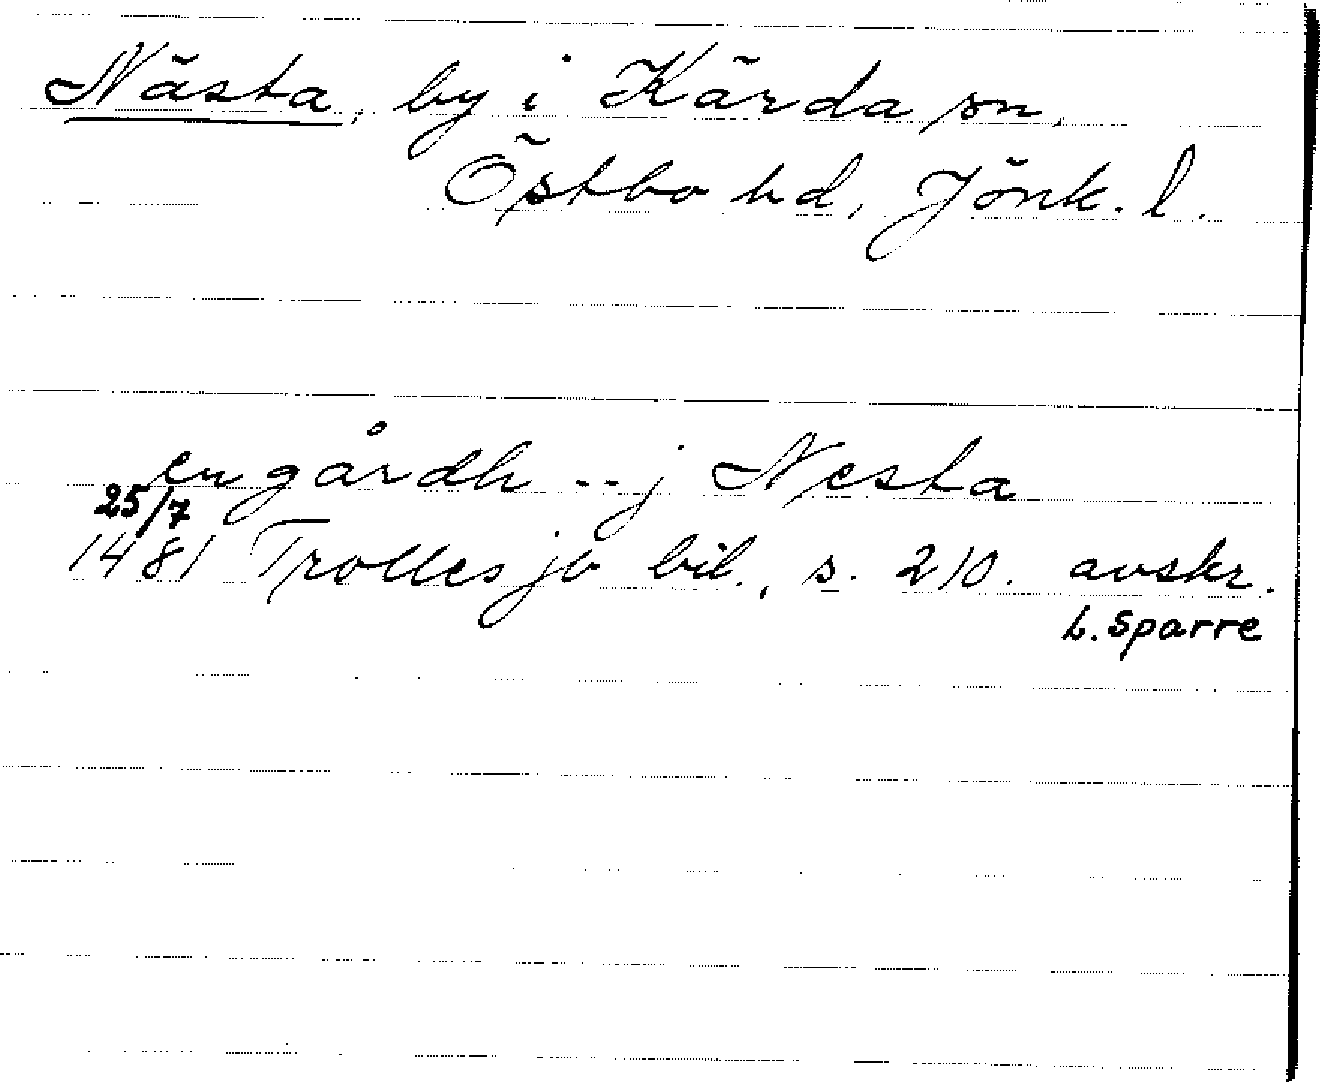 Nästa, by i Kärda sn,
Östbo hd, Jönk. l.
en gårdh -- j Nesta
25/7
1481 Trolles jb bil., s. 210. avskr.
L. Sparre